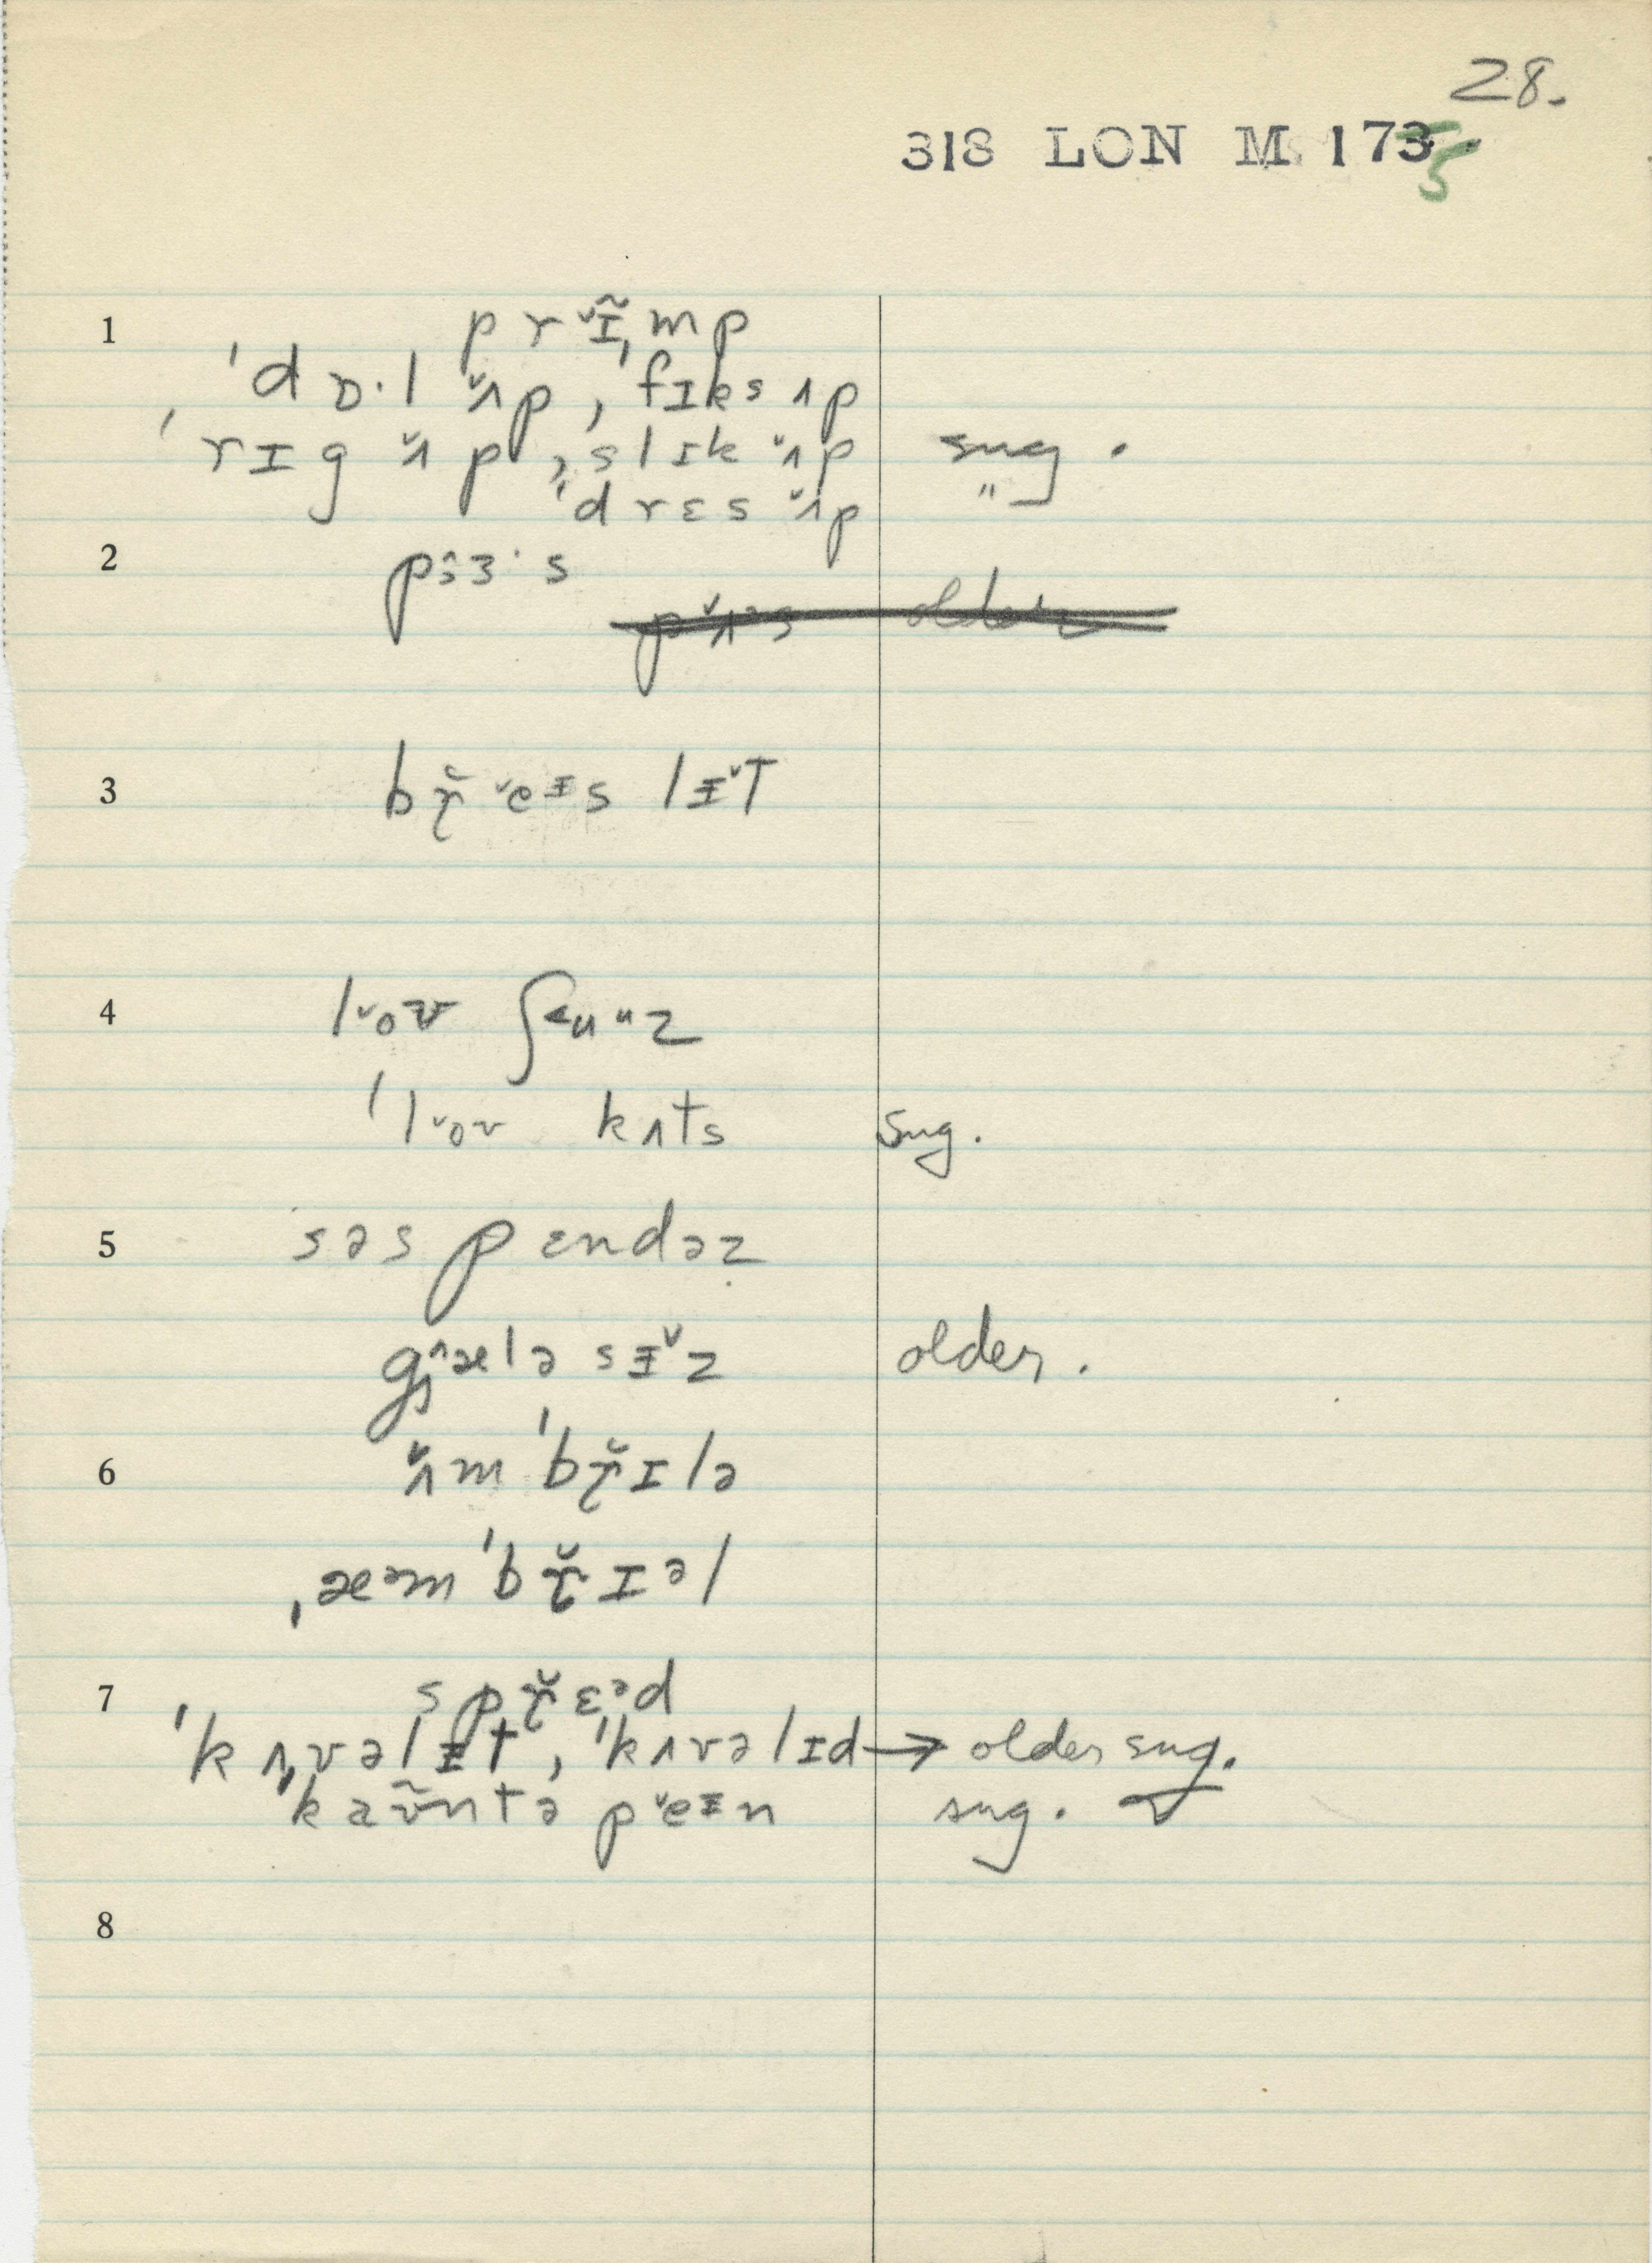 28.
318 LON M 1735.
1 p r ˇɪ̃, m p
ˈd ɒ· l ʌ̌p, ˈfɪks ʌp
ˈrɪg ʌ̌p, ˈslɪk ʌ̌p sug.
ˈdrɛs ʌ̌p "
2 pɜ·s
older
3 b r̬ ˇeɪs lɪˇT
4 lˇoʊ ʃ<uuz
ˈlˇoʊ kʌts sug.
5 səspɛndəz
gˆæləsɪˇz older.
6 ʌ̌mˈbr̬ɪlə
ˌæəmˈbr̬ɪəl
7 spr̬ɛəd
ˈkʌvəlɪt, ˈkʌvəlɪd → older sug.
ˈkaʊ̃ntəpˇeɪn sug.
8